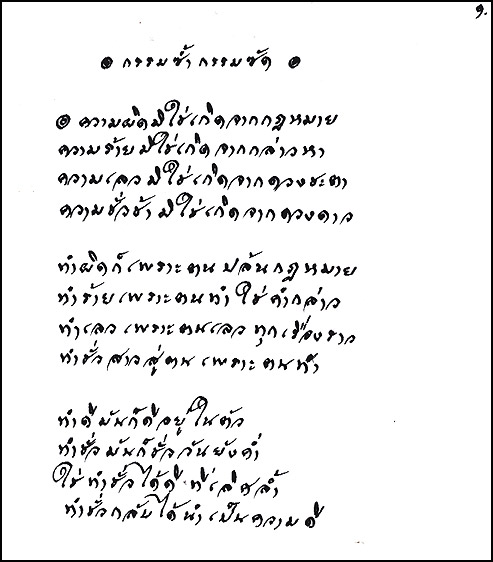 ๑.
๏ กรรมซ้ำ กรรมซัด ๏
๏ ความผิดมิใช่เกิดจากกฎหมาย
ความร้ายมิใช่เกิดจากกล่าวหา
ความเลวมิใช่เกิดจากดวงชะตา
ความชั่วช้ามิใช่เกิดจากดวงดาว
ทำผิดก็เพราะตนปล้นกฎหมาย
ทำร้ายเพราะตนทำใช่คำกล่าว
ทำเลวเพราะตนเลวทุกเรื่องราว
ทำชั่วสาวสู่ตนเพราะตนทำ
ทำดีมันก็ดีอยู่ในตัว
ทำชั่วมันก็ชั่ววันยังค่ำ
ใช่ทำชั่วได้ดีที่เลิศล้ำ
ทำชั่วกลับได้นำเป็นความดี